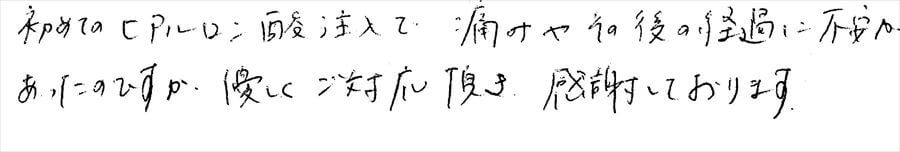 初めてのヒアルロン酸注入で、痛みやその後の経過に不安が
あったのですが、優しくご対応頂き、感謝しております。